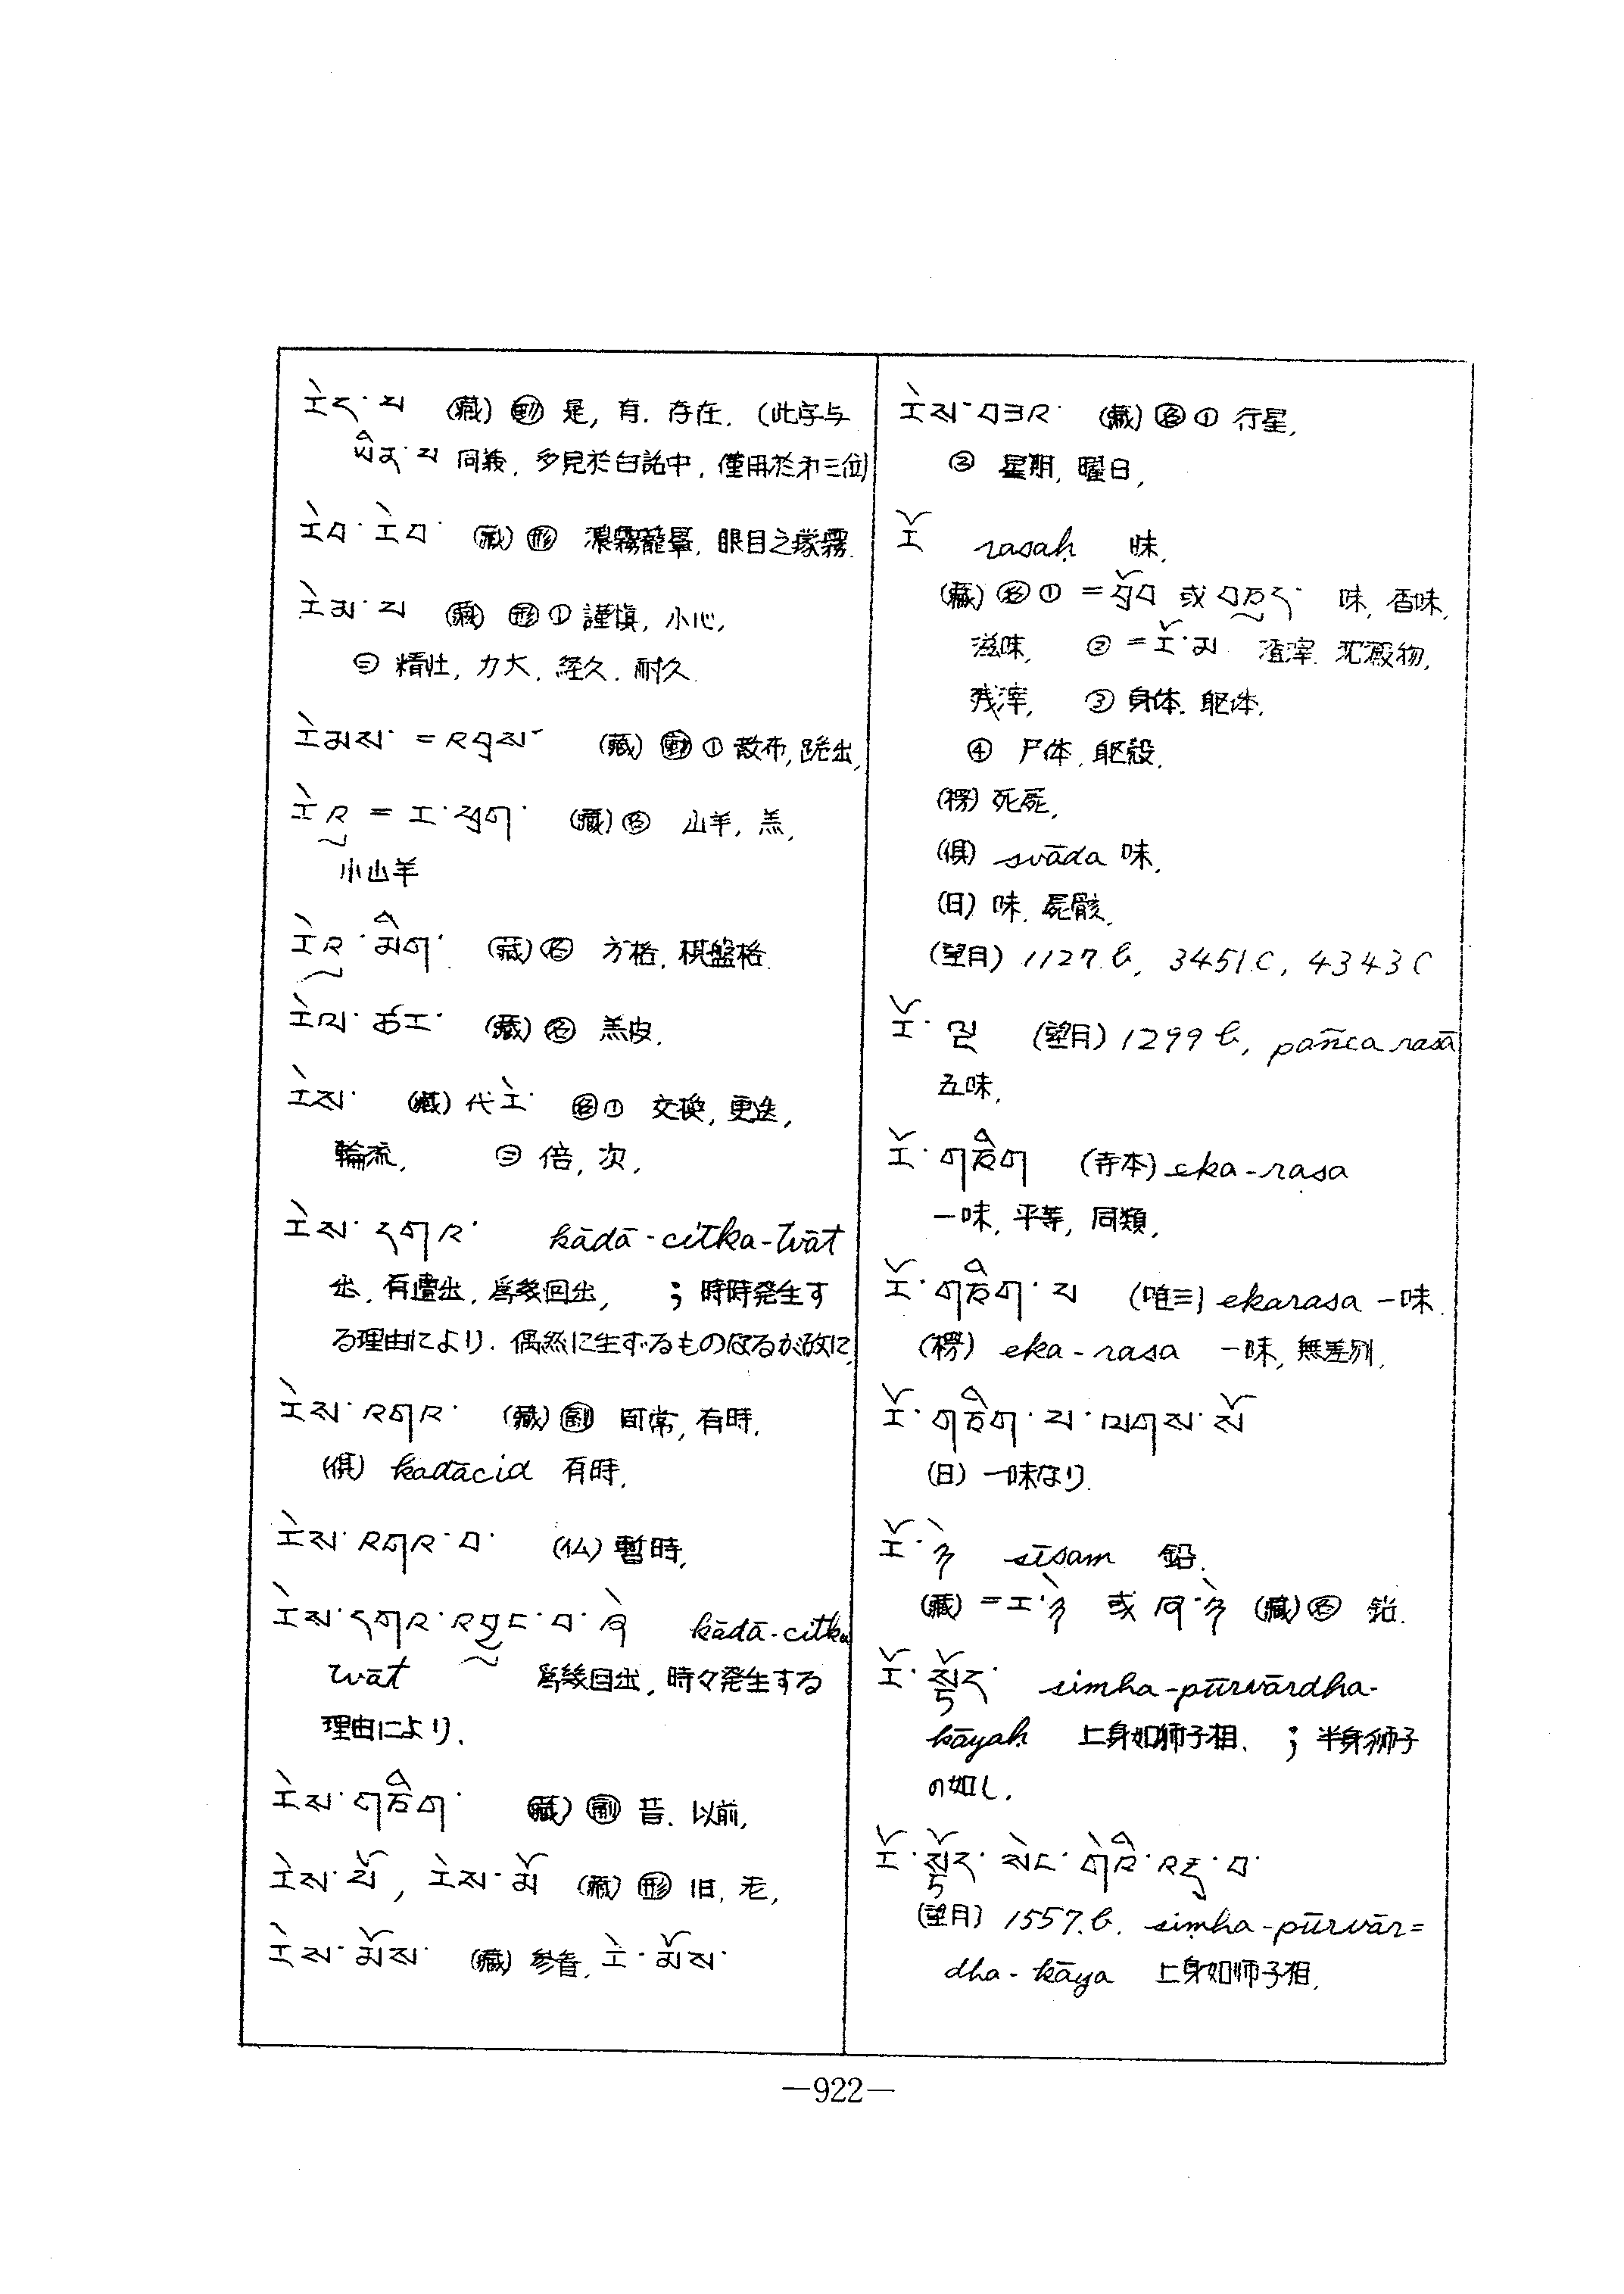 རེད་པ (藏) 動 是, 有. 存在. (此字与
ཡིན་པ 同義, 多見於白話中, 僅用於才三位)
རེབ་རེབ་ (藏) 形 濃霧籠罩, 眼目之朦霧.
རེམ་པ (藏) 形 ① 謹慎, 小心,
② 精壯, 力大, 経久. 耐久.
རེམས་ = འགྲེམས་ (藏) 動 ① 散布, 跳出,
རེའ = ར་ཕྲུག་ (藏) 名 山羊, 羔,
小山羊
རེའ་མིག་ (藏) 名 方格, 棋盤格.
རེལ་ཚར་ (藏) 名 羔皮.
རེས་ (藏) 代 རེ་ 名 ① 交換, 更迭,
輪流, ② 倍, 次,
རེས་དགའ་ kādā-citka-tvāt
出, 有遭出, 為幾回出, ; 時時発生す
る理由により. 偶然に生ずるものなるが故に,
རེས་འགའ་ (藏) 副 間常, 有時,
(倶) kadācid 有時,
རེས་འགའ་བ་ (仏) 暫時,
རེས་དགའ་འབྱུང་བ་ཉེ kādā-citka
tvāt 為幾回出, 時々発生する
理由により.
རེས་གཅིག་ (藏) 副 昔. 以前,
རེས་པོ, རེས་མོ (藏) 形 旧, 老,
རེས་མོས་ (藏) 参看, རེ་མོས་
རེས་བཟའ་ (藏) 名 ① 行星,
② 星期, 曜日,
རོ rasaḥ 味,
(藏) 名 ① = བྲོབ 或 བཅུད་ 味, 香味,
滋味, ② = རོ་མ 渣滓. 沉澱物,
残滓, ③ 身体. 軀体,
④ 尸体, 軀殻,
(楞) 死屍,
(倶) svāda 味,
(日) 味. 屍骸,
(望月) 1127.b, 3451.C, 4343C
རོ་ལྔ (望月) 1299b, pañca rasā
五味,
རོ་གཅིག (寺本) eka-rasa
一味, 平等, 同類,
རོ་གཅིག་པ (唯三) ekarasa 一味.
(楞) eka-rasa 一味, 無差別,
རོ་གཅིག་པ་ལགས་སོ
(日) 一味なり.
རོ་ཉེ sīsam 鉛.
(藏) = ར་ཉེ 或 ཞ་ཉེ (藏) 名 鉛.
རོ་སྟོད་ siṃha-pūrvārdha-
kāyaḥ 上身如獅子相, ; 半身獅子
の如し,
རོ་སྟོད་སེང་གེའི་འདྲ་བ་
(望月) 1557.b. siṃha-pūrvār=
dha-kāya 上身如师子相,
—922—